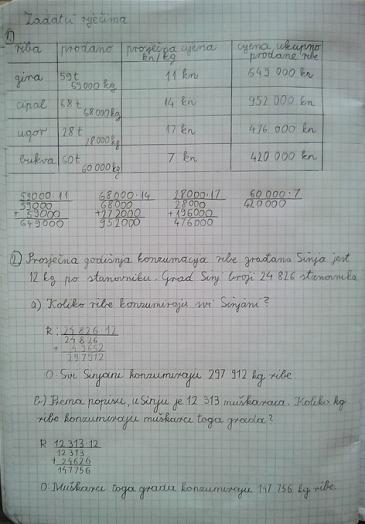 Zadatci riječima
1)
riba prodano prosječna cijena kn/kg cijena ukupno prodane ribe
gira 59 t 59 000 kg 11 kn 649 000 kn
cipal 68 t 68 000 kg 14 kn 952 000 kn
ugor 28 t 28 000 kg 17 kn 476 000 kn
bukva 60 t 60 000 kg 7 kn 420 000 kn
59000 · 11 68000 · 14 28000 · 17 60 000 · 7
59000 68000 28000 420000
+ 59000 +272000 +196000
649000 952000 476000
2) Prosječna godišnja konzumacija ribe građana Sinja jest
12 kg po stanovniku. Grad Sinj broji 24 826 stanovnika
a) Koliko ribe konzumiraju svi Sinjani?
R: 24 826 · 12
24 826
+ 49652
297912
O: Svi Sinjani konzumiraju 297 912 kg ribe
b) Prema popisu, u Sinju je 12 313 muškaraca. Koliko kg
ribe konzumiraju muškarci toga grada?
R 12 313 · 12
12 313
+ 24626
147756
O: Muškarci toga grada konzumiraju 147 756 kg ribe.